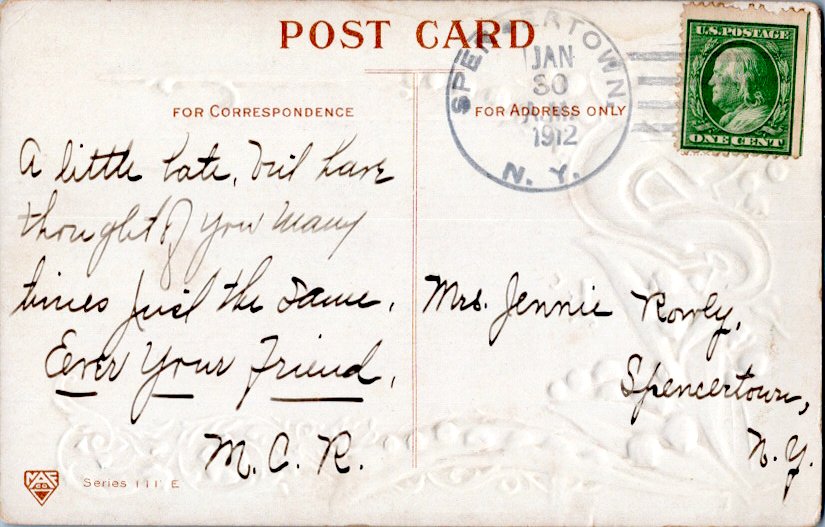 POST CARD
SPENCERTOWN
JAN
30
A.M.
1912
N. Y.
U.S. POSTAGE
ONE CENT
FOR CORRESPONDENCE
FOR ADDRESS ONLY
A little late, but have
thought of you many
times just the same.
Ever Your Friend,
M. C. R.
Mrs. Jennie Rowly,
Spencertown,
N. Y.
Series 111 E